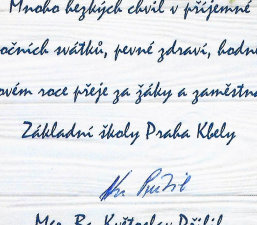 Mnoho hezkých chvil v příjemné
očních svátků, pevné zdraví, hodně
ovém roce přeje za žáky a zaměstna
Základní školy Praha Kbely
Mgr. Bc. Květoslav Přilil